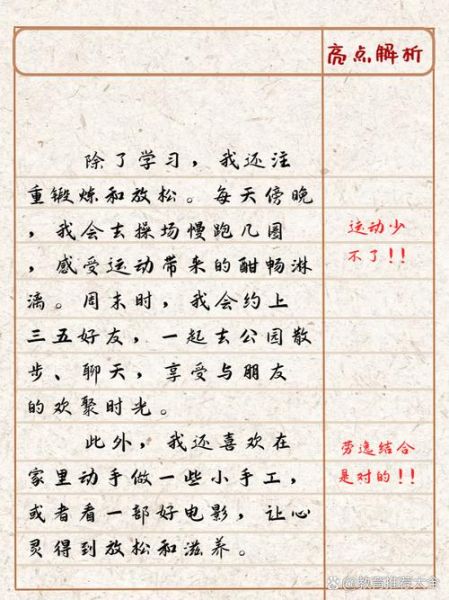 亮点解析
除了学习，我还注
重锻炼和放松。每天傍晚
，我会去操场慢跑几圈
，感受运动带来的酣畅淋
漓。周末时，我会约上
三五好友，一起去公园散
步、聊天，享受与朋友
的欢聚时光。
此外，我还喜欢在
家里动手做一些小手工，
或者看一部好电影，让心
灵得到放松和滋养。
运动少
不了！！
劳逸结合
是对的！！
@教育推荐大全